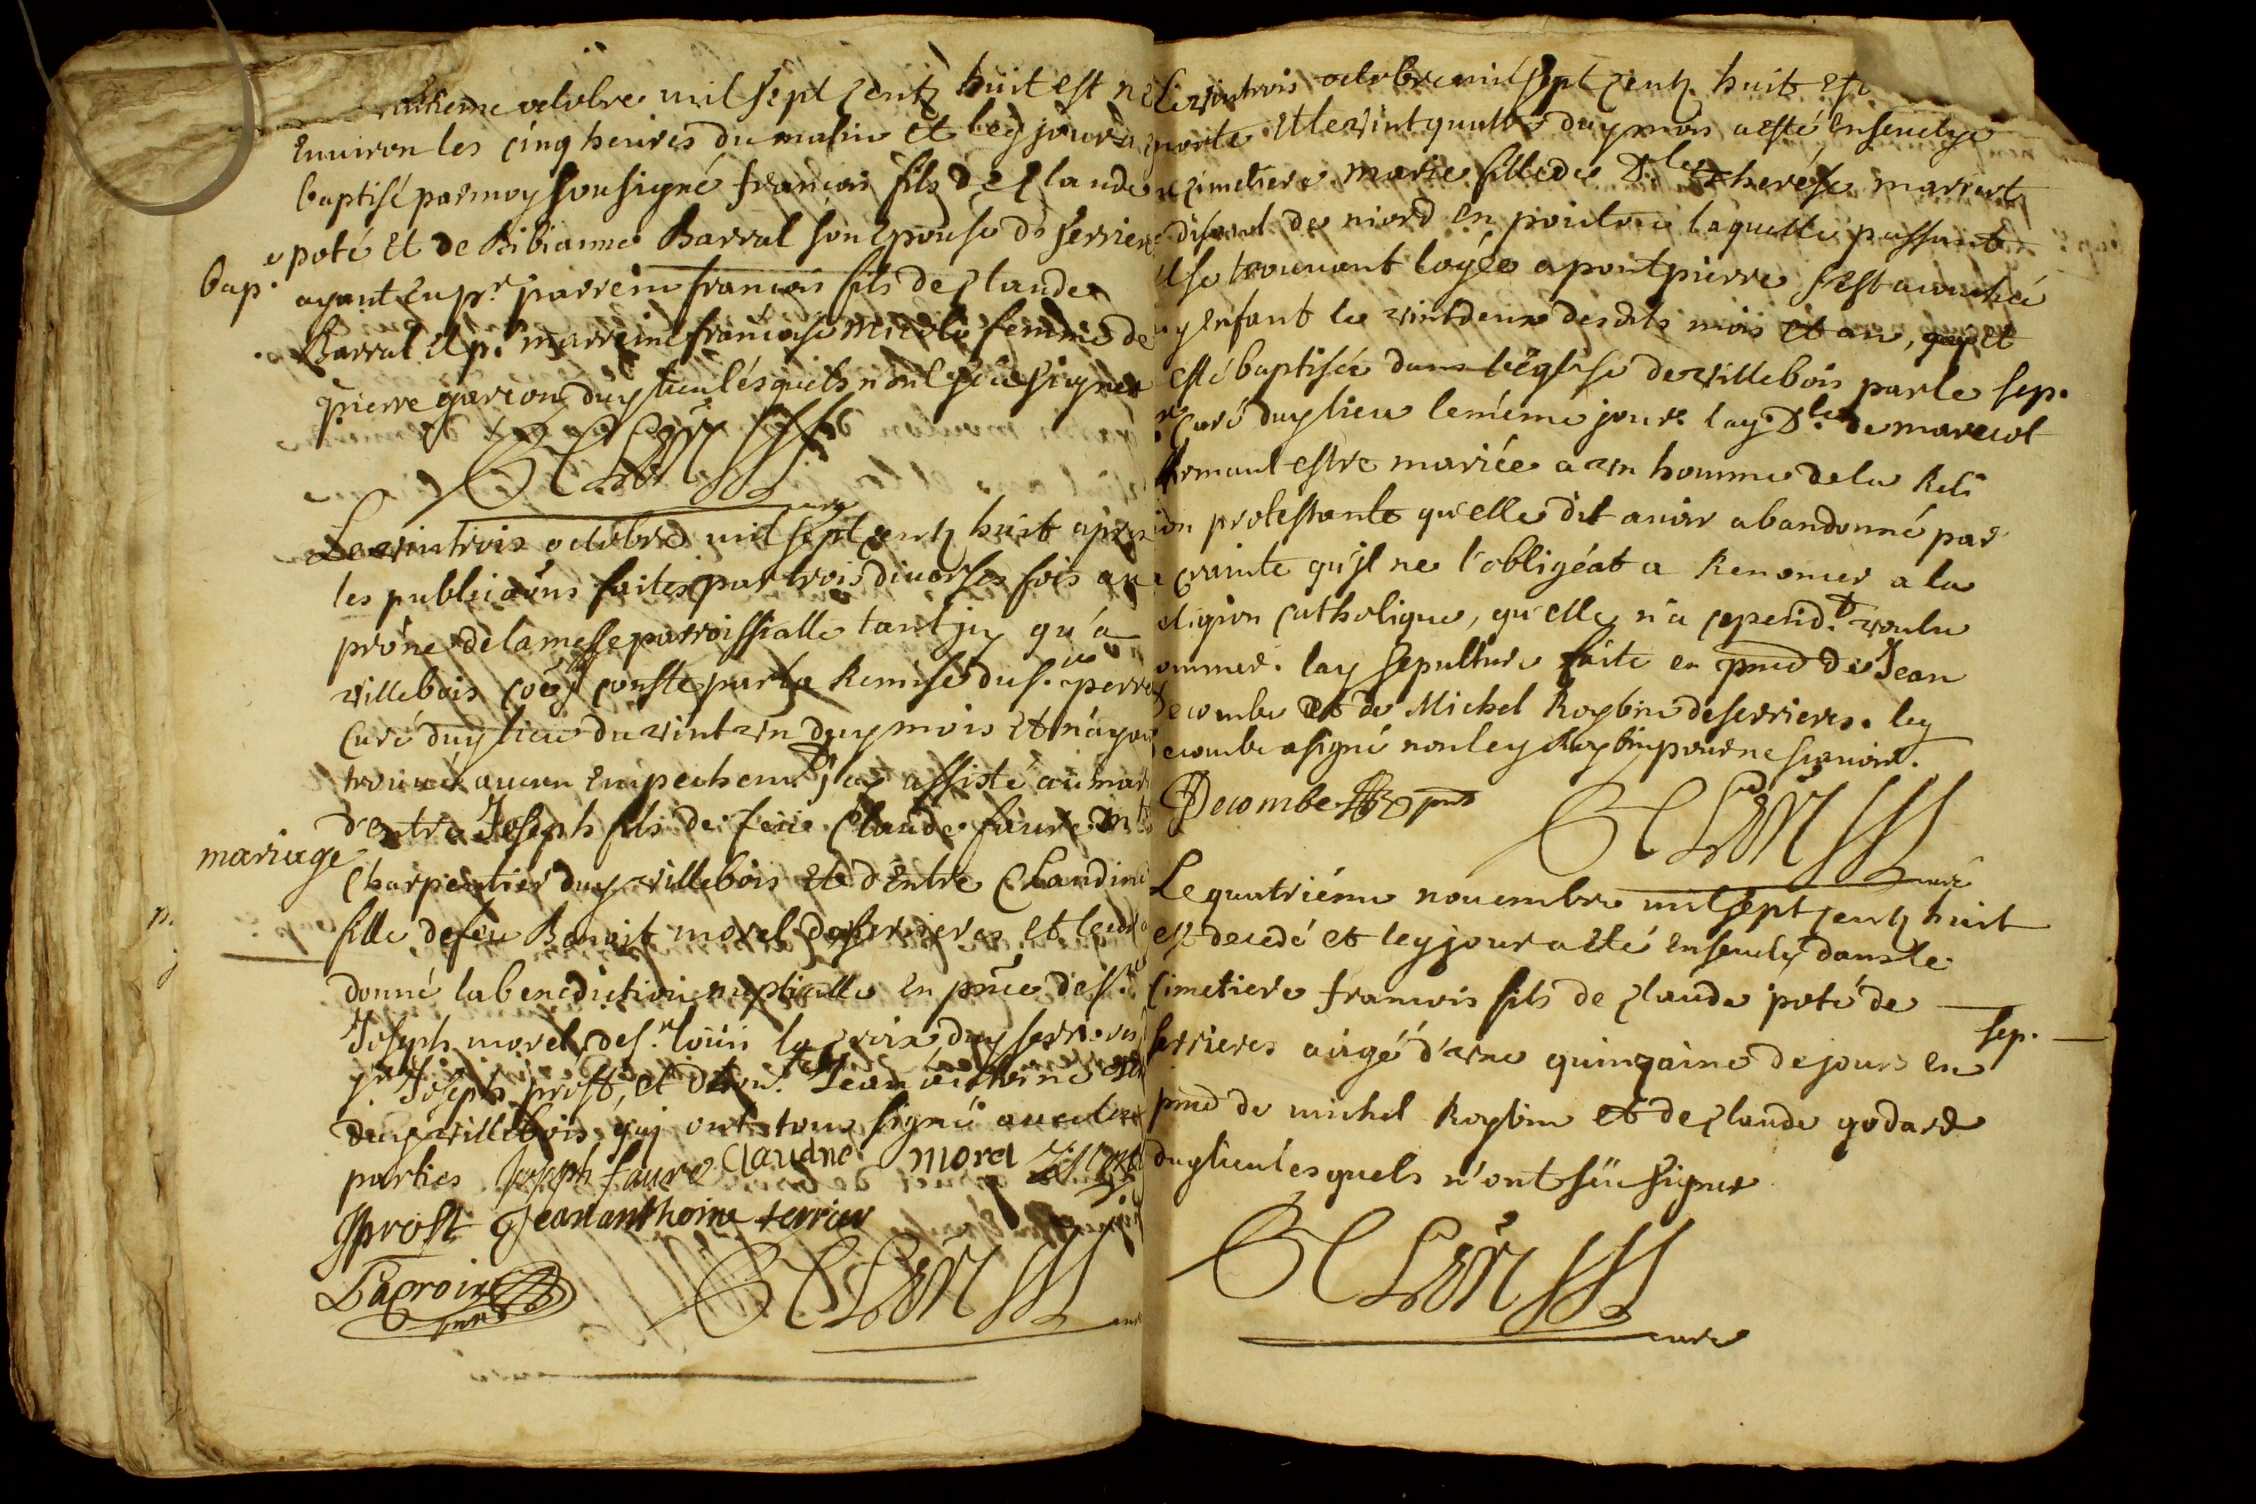 octobre mil sept centz huit est né
environ les cinq heures du matin et ley jour a
baptisé par moy sousigné francois fils de Claude
poté et de Bibianne Barral son epouse de serrieres
bap.e
ayant eu pr. parrein francois fils de Claude
Barral et pr. marreine francoise femme de
pierre garcon duy lieu lesquels n'ont sceu signer
curé
Le vintrois octobre mil sept centz huit apres
les publications faites par trois diverses fois au
prône de la messe parroissialle tant jcy qu'a
villebois coe. conste par la Remise du sr.
curé duy lieu du vint un duy mois et n'ayant
trouvé aucun empechemt. j'ay assisté au mar
d'entre Joseph fils de feu Claude faure mtre
mariage
Charpentier duy villebois et d'entre Claudine
fille de feu Benoist morel de serrieres et leur
donné la benediction nuptialle en pnce de sr.
Joseph morel, de sr. louis la croix duy serrieres
sr. Joseph prost, et d'hon. Jean antoine
duy villebois, qui ont tous signé avec les
parties Joseph faure Claudne morel
Jprost Jean anthoine terrier
Lacroix
curé
Le vintrois octobre mil sept centz huit est
morte et le vint quatre duy mois a esté ensevelye
cimetiere marie fille de Dlle Therése
disant de niord en poictou laquelle passant
se trouvant logée a pont pierre s'est accouchée
y enfant le vint deux desdits mois et an, et
esté baptisée dans l'église de villebois par le sep.
curé duy lieu le même jour. lay. Dlle de
estre mariée a un homme de la Reli
ion protestante qu'elle dit avoir abandonné par
crainte qu'il ne l'obligéat a Renoncer a la
eligion catholique, qu'elle n'a cepend.t voulu
lay sepulture faite en pnce de Jean
ecombe et de Michel Roybin de serrieres. ley
ecombe a signé non ley Roybin pour ne scavoir.
Decombe pnt
curé
Le quatriéme novembre mil sept centz huit
est decedé et ley jour a eté ensevely dans le
cimetiere francois fils de Claude poté de
sep.
serrieres aâgé d'une quinzaine de jours en
pnce de michel Roybin et de Claude godard
duy lieu lesquels n'ont sçu signer
curé